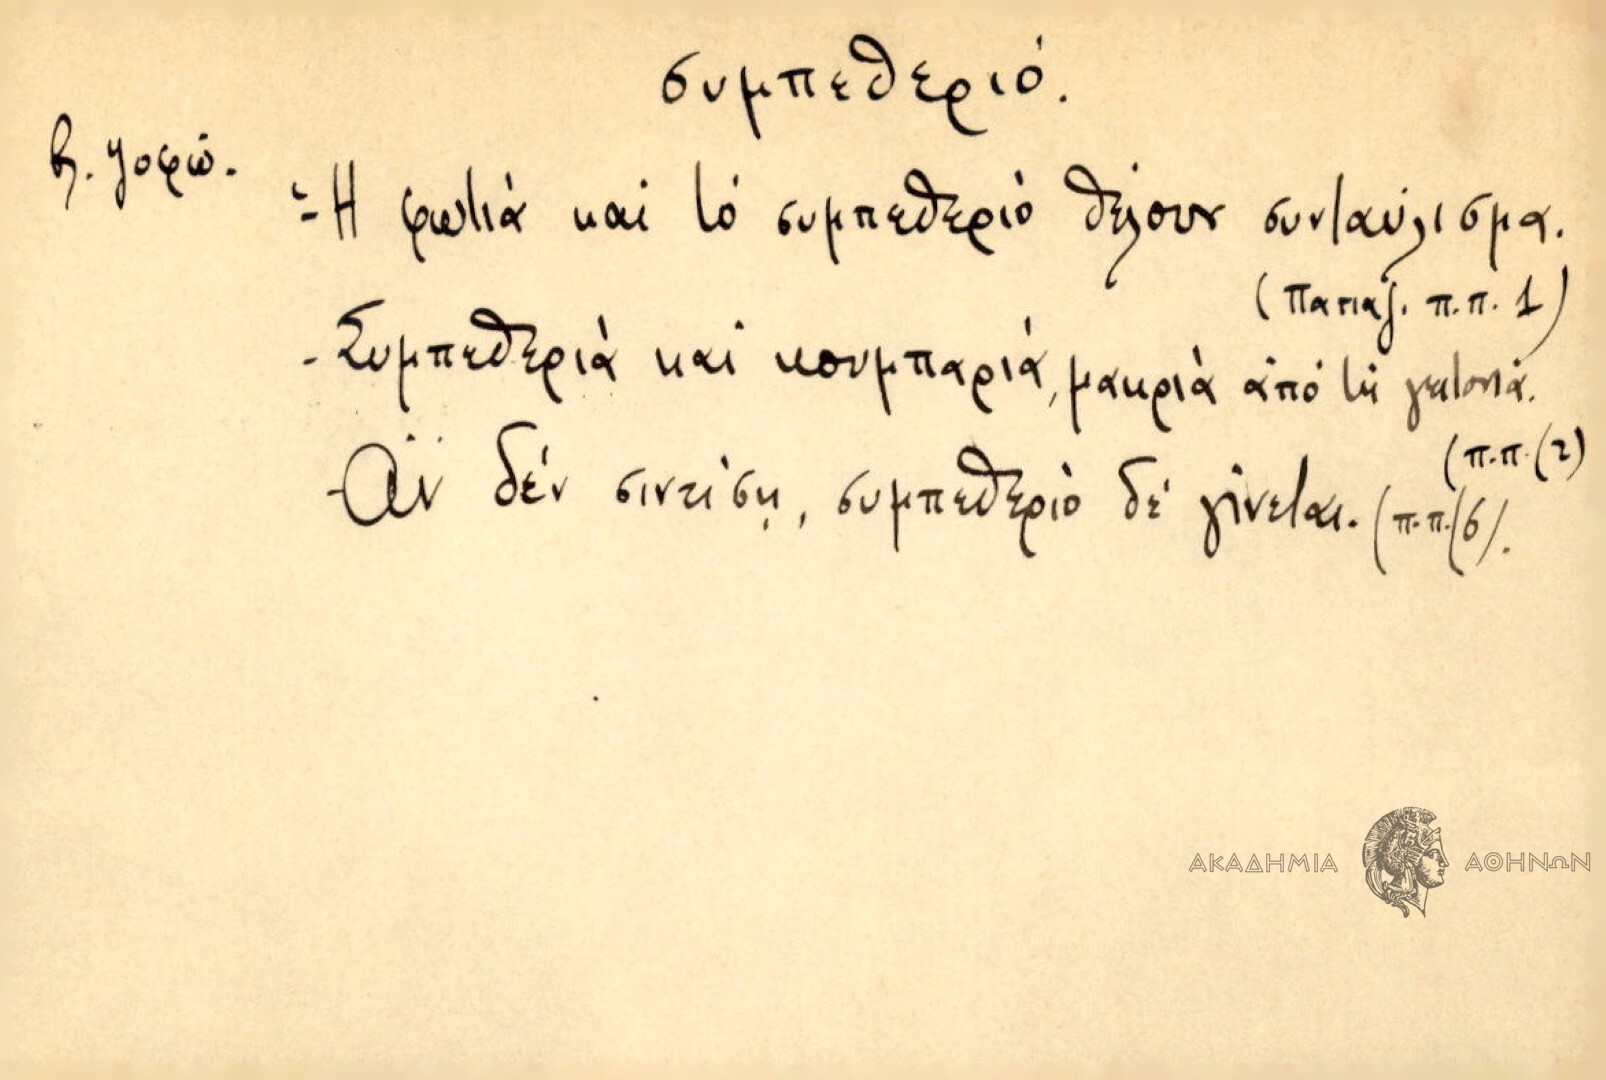 συμπεθεριό.
βλ. γοφώ.
- Ἡ φωτιά καί τό συμπεθεριό θέλουν συνταύλισμα.
(Παπαζ. π.π. 1)
- Συμπεθεριά καί κουμπαριά, μακριά ἀπό τή γειτονιά.
(π.π. (2)
- Ἄν δέν σιντύσῃ, συμπεθεριό δέ γίνεται. (π.π. (6).
ΑΚΑΔΗΜΙΑ ΑΘΗΝΩΝ